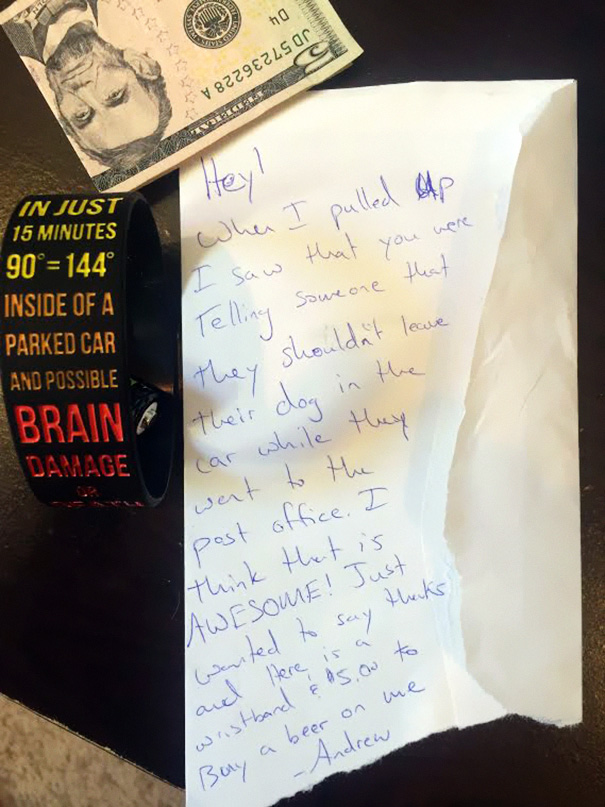 JD57236228A
D4
FEDERAL
5
IN JUST
15 MINUTES
90°=144°
INSIDE OF A
PARKED CAR
AND POSSIBLE
BRAIN
DAMAGE
OR
Hey!
When I pulled up
I saw that you were
Telling someone that
they shouldn't leave
their dog in the
car while they
went to the
post office. I
think that is
AWESOME! Just
wanted to say thanks
and Here is a
wristband & $5.00 to
Buy a beer on me
- Andrew